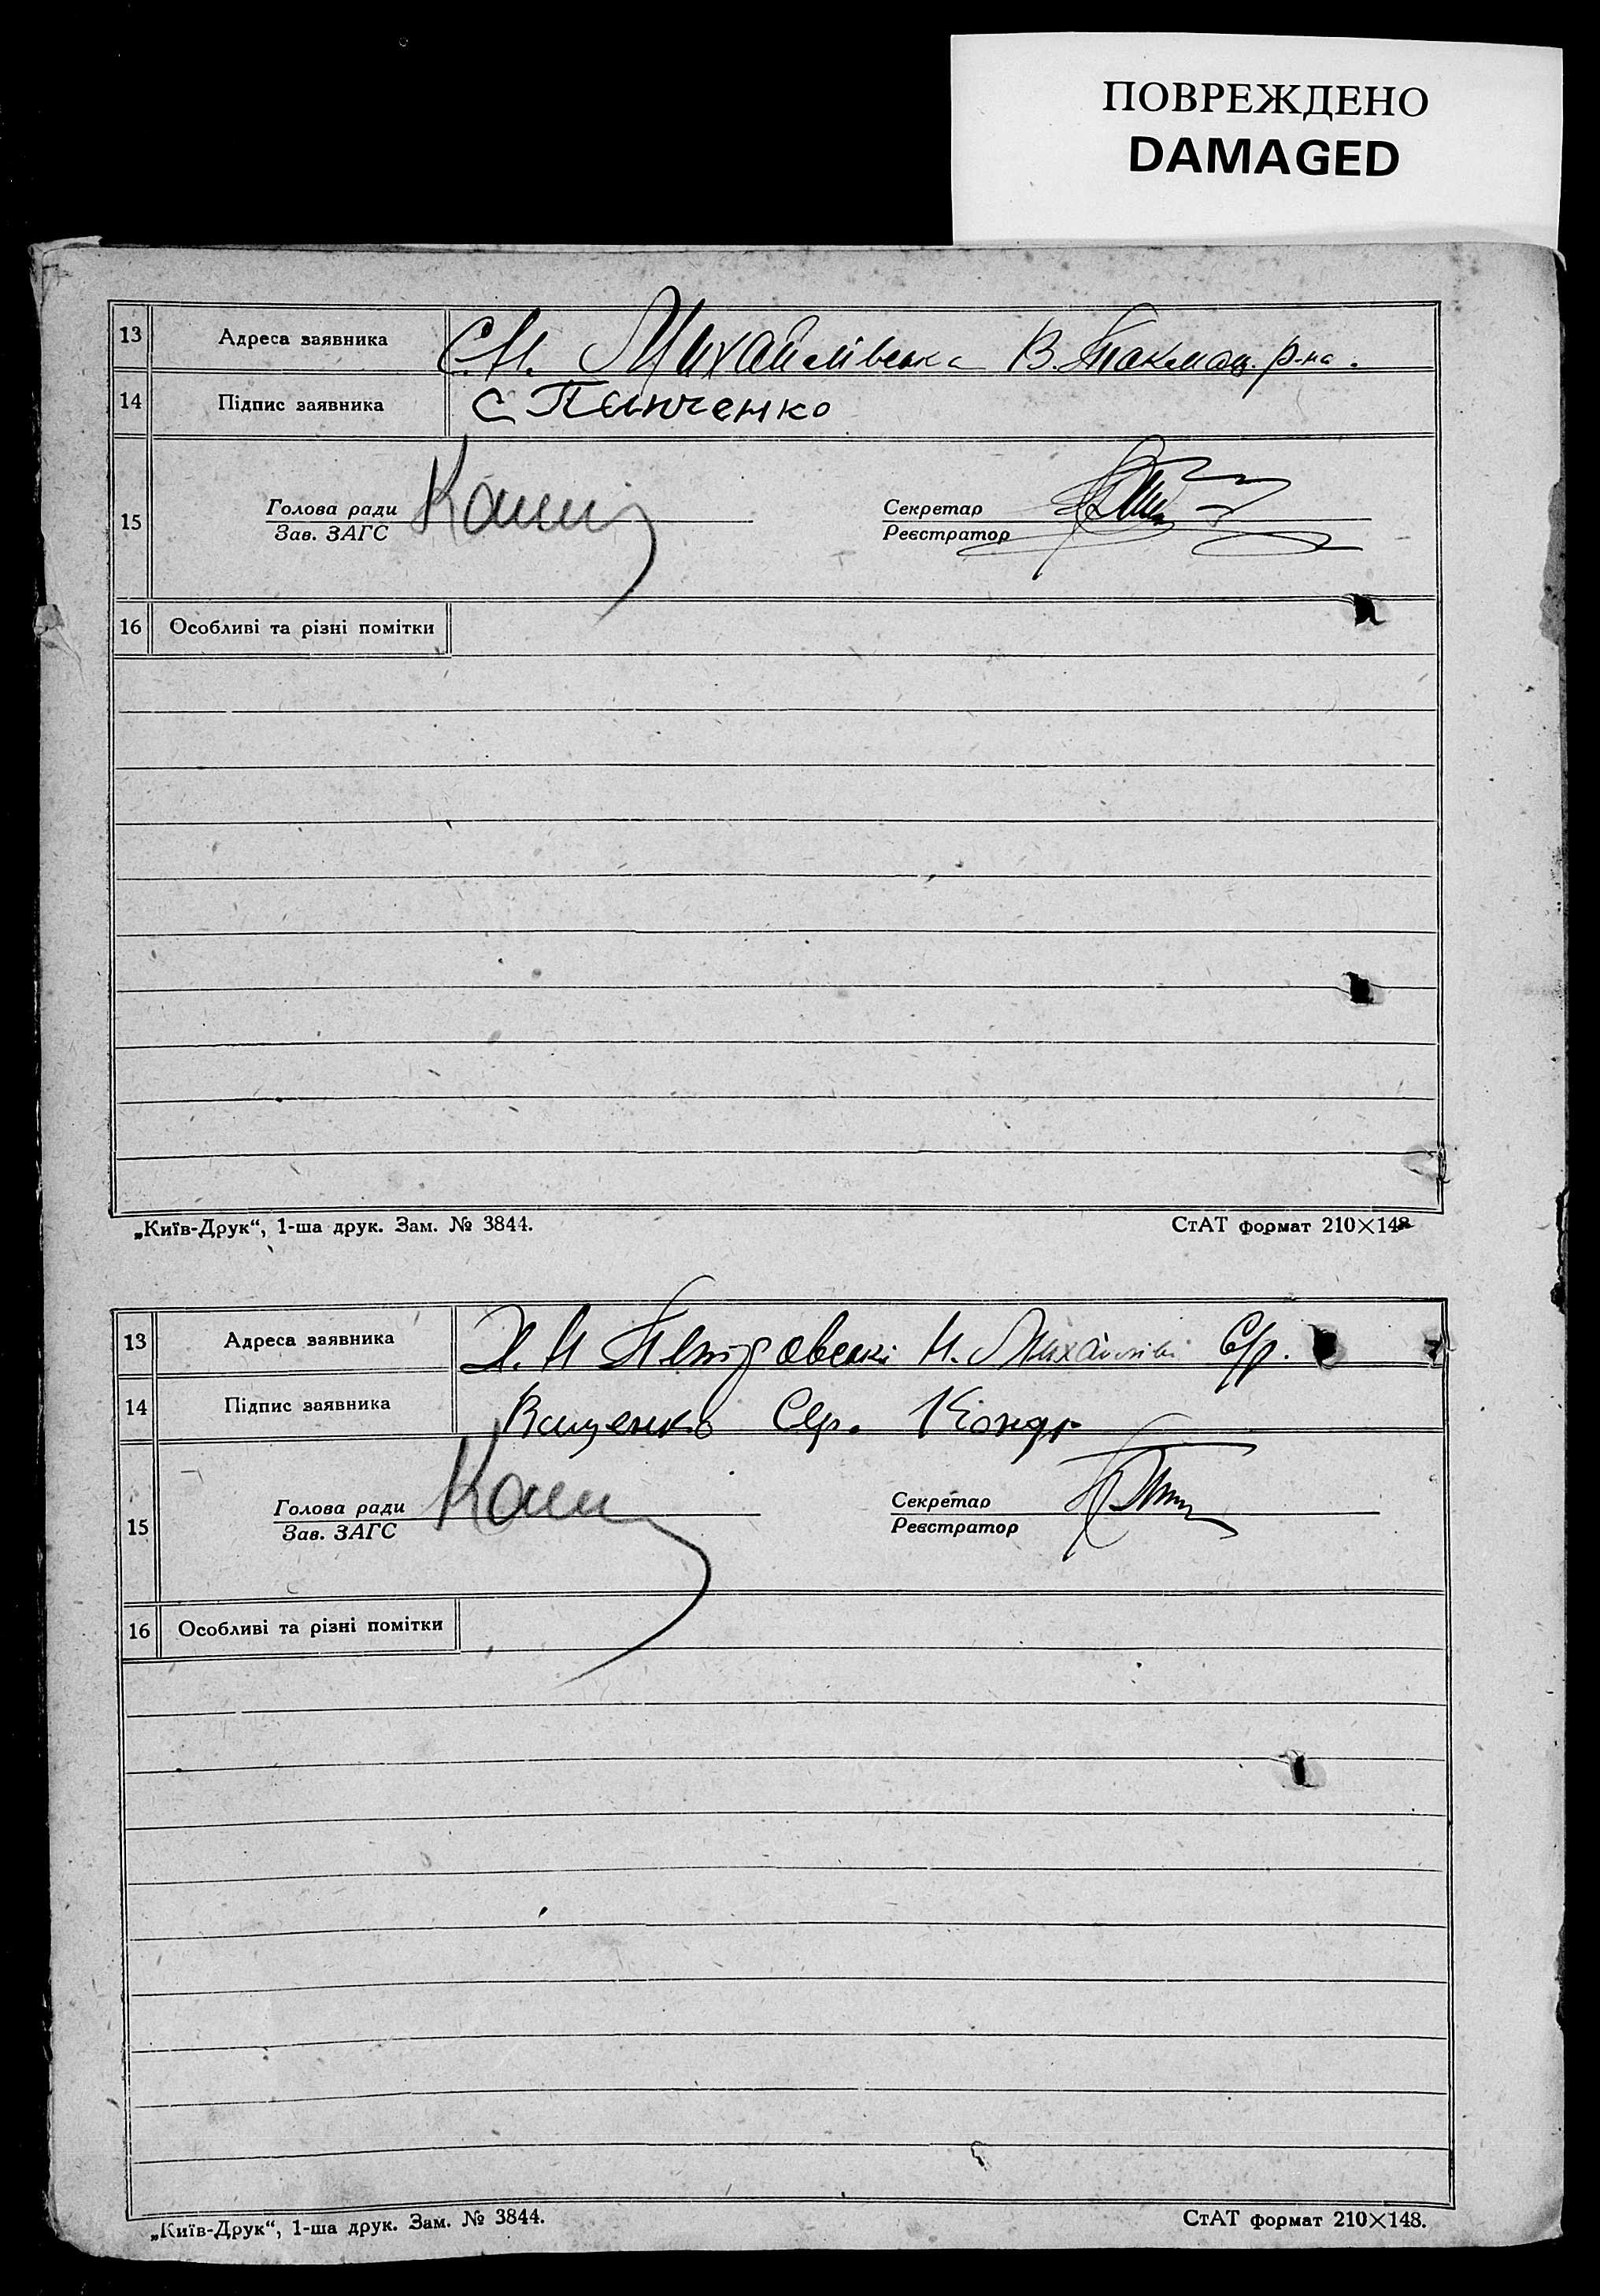 ПОВРЕЖДЕНО
DAMAGED
13 Адреса заявника С.Н. Михайлівська В. Токмац. р-на.
14 Підпис заявника С Панченко
15 Голова ради Секретар
Зав. ЗАГС Реєстратор
16 Особливі та різні помітки
„Київ-Друк“, 1-ша друк. Зам. № 3844. СтАТ формат 210×148
13 Адреса заявника Х. Н Петровські Н. Михайлів С/р.
14 Підпис заявника Ващенко Сер. Кондр
15 Голова ради Секретар
Зав. ЗАГС Реєстратор
16 Особливі та різні помітки
„Київ-Друк“, 1-ша друк. Зам. № 3844. СтАТ формат 210×148.